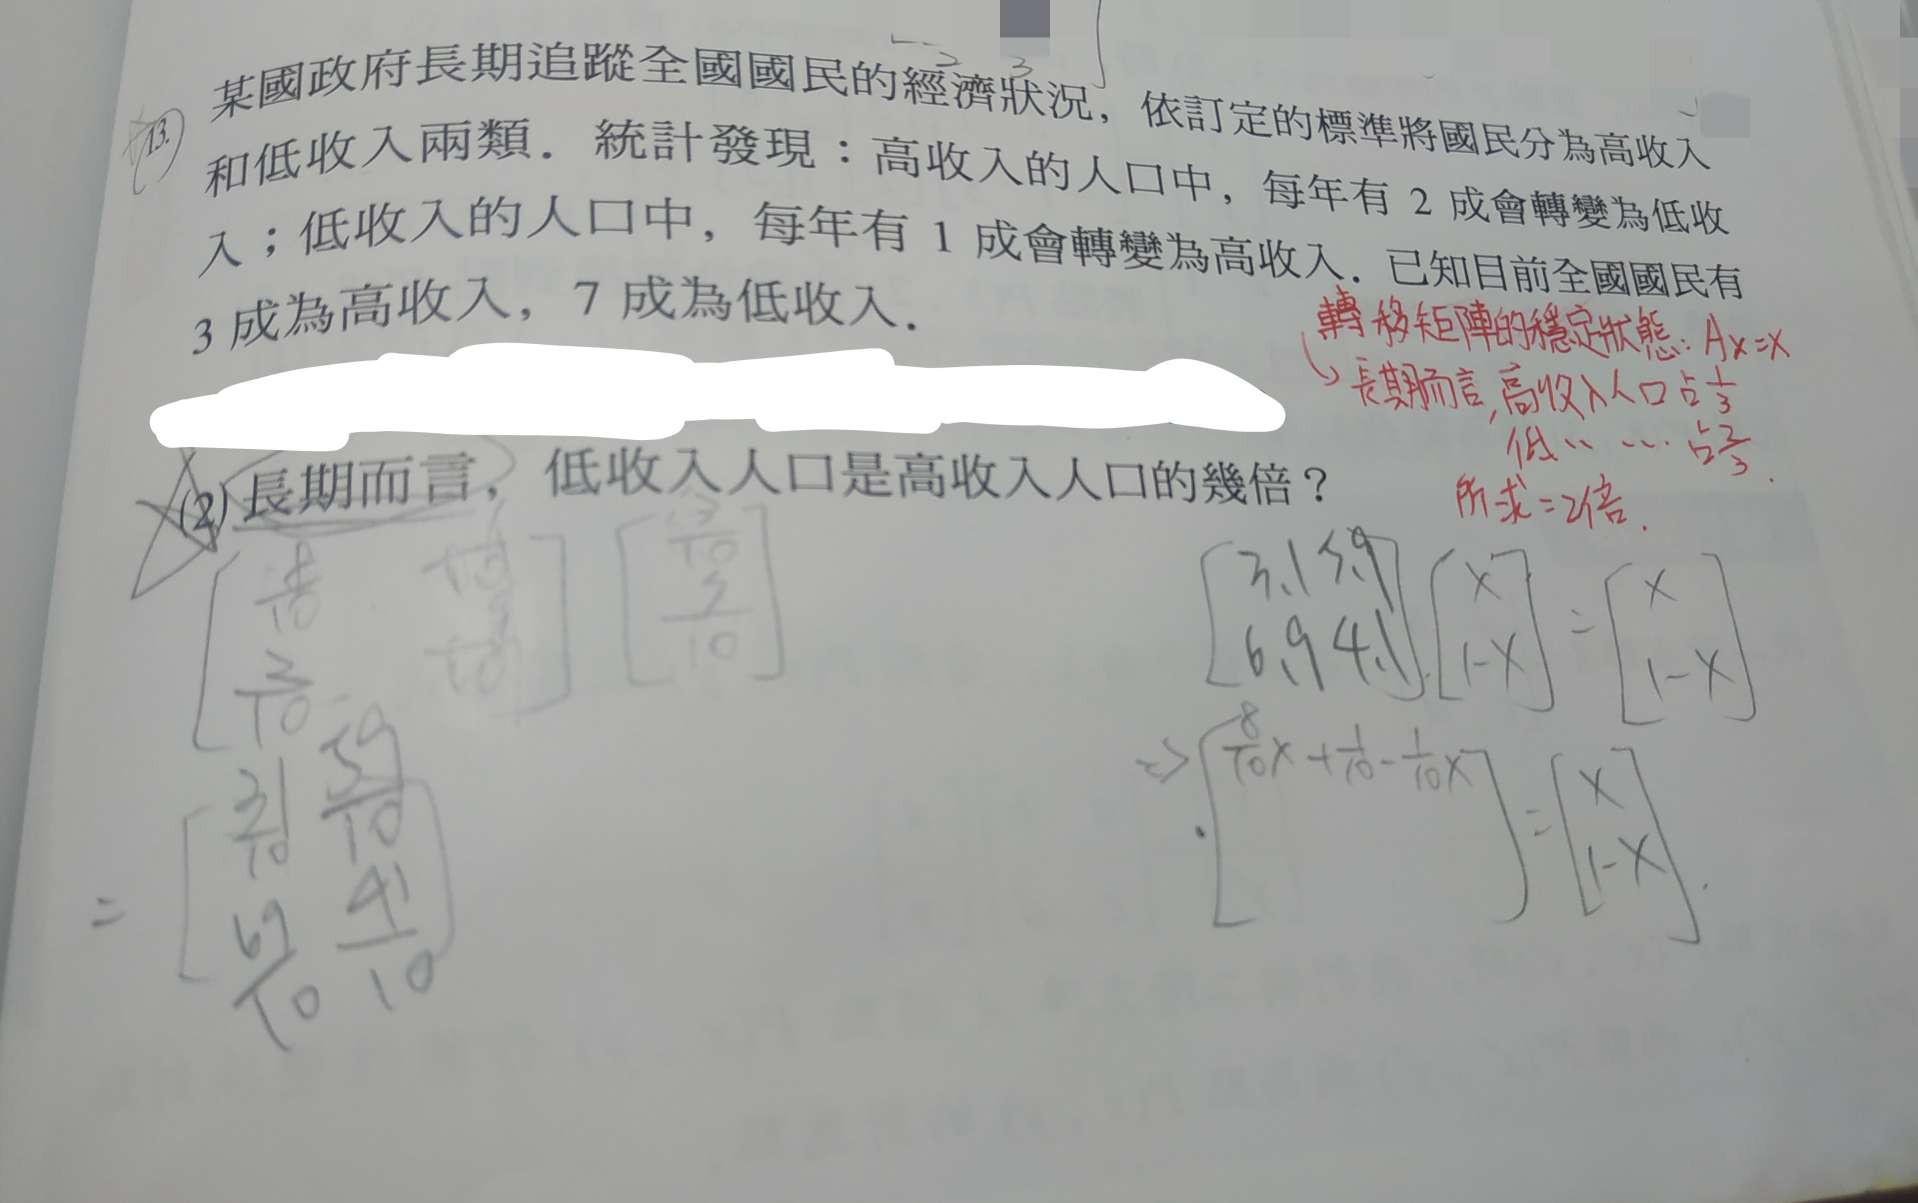 13.
某國政府長期追蹤全國國民的經濟狀況，依訂定的標準將國民分為高收入
和低收入兩類．統計發現：高收入的人口中，每年有 2 成會轉變為低收
入；低收入的人口中，每年有 1 成會轉變為高收入．已知目前全國國民有
3 成為高收入，7 成為低收入．
轉移矩陣的穩定狀態: Ax=x
長期而言,高收入人口占1/3
低‥ … 占2/3.
所求=2倍.
(2) 長期而言，低收入人口是高收入人口的幾倍？
[3.1 5.9] [x] = [x]
[6.9 4.1] [1-x] [1-x]
=> [8/10x + 1/10 - 1/10x] = [x]
[1-x].
= [31/10 59/10]
[69/10 41/10]